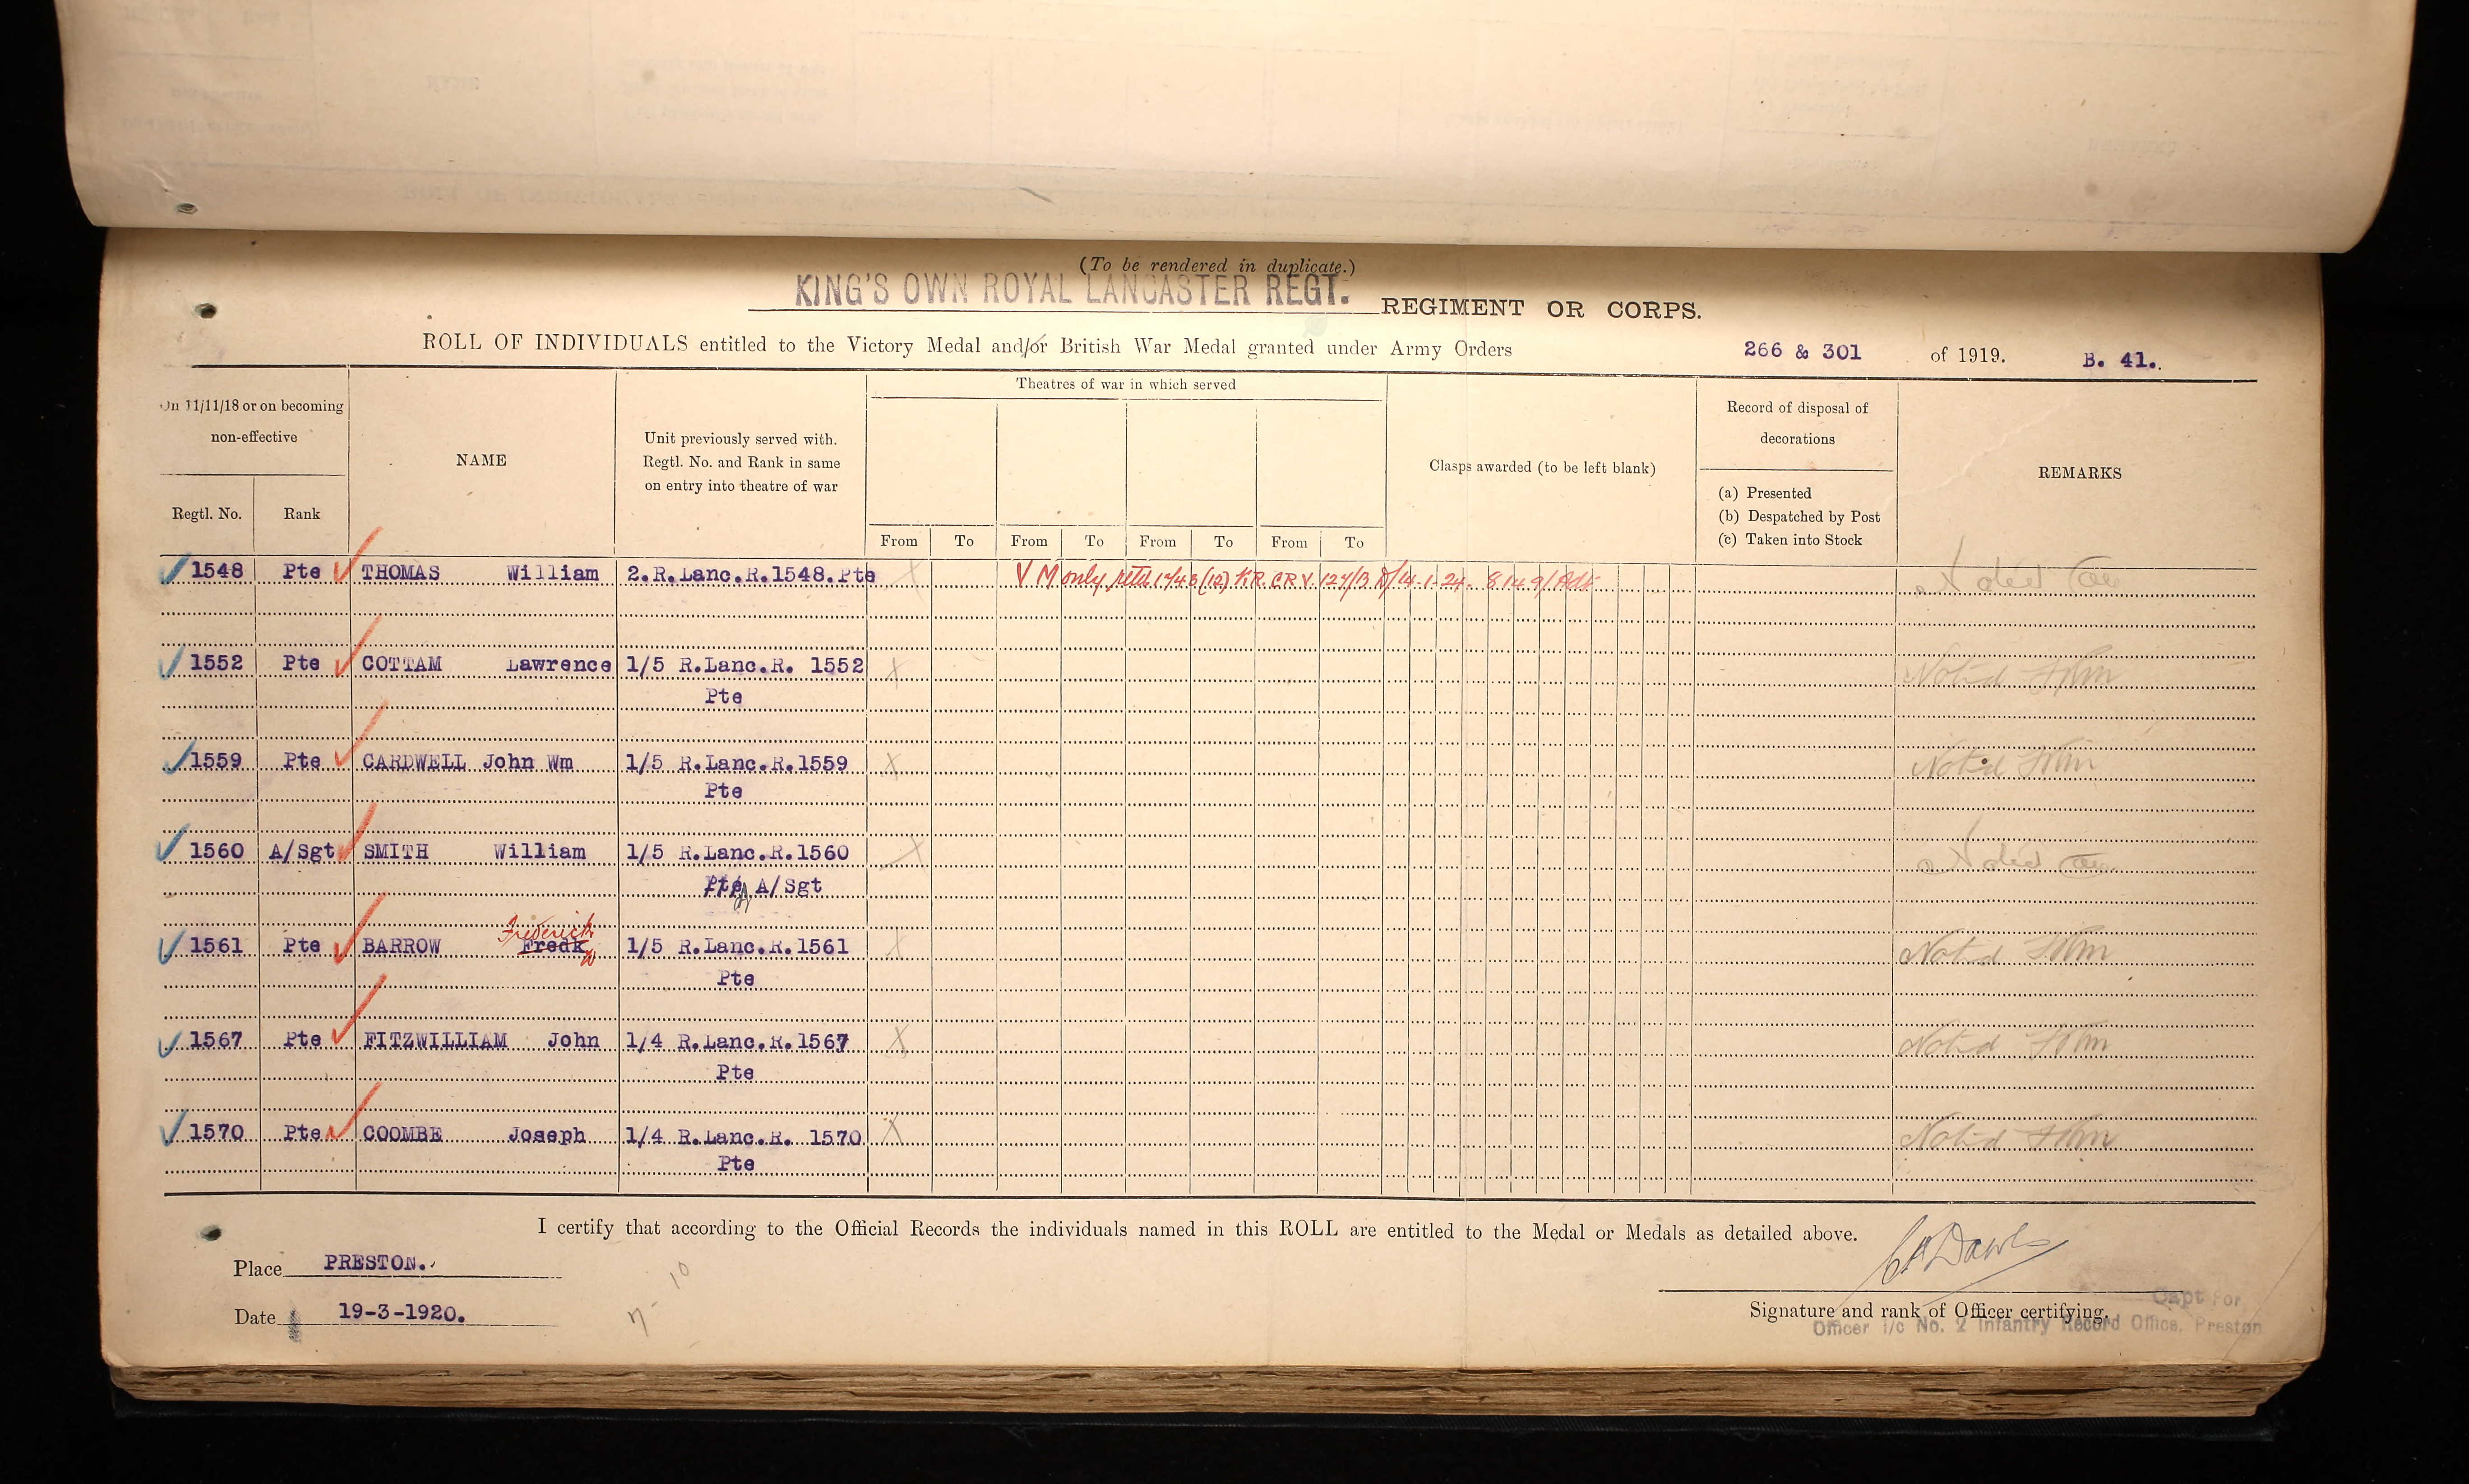 (To be rendered in duplicate.)
KING'S OWN ROYAL LANCASTER REGT. REGIMENT OR CORPS.
ROLL OF INDIVIDUALS entitled to the Victory Medal and/or British War Medal granted under Army Orders 266 & 301 of 1919. B. 41.
On 11/11/18 or on becoming non-effective
Regtl. No.
Rank
NAME
Unit previously served with.
Regtl. No. and Rank in same
on entry into theatre of war
Theatres of war in which served
From To From To From To From To
Clasps awarded (to be left blank)
Record of disposal of
decorations
(a) Presented
(b) Despatched by Post
(c) Taken into Stock
REMARKS
1548 Pte THOMAS William 2.R.Lanc.R.1548.Pte V M only retd K.R. CRV 14-1-24 Noted
1552 Pte COTTAM Lawrence 1/5 R.Lanc.R. 1552 X Noted
Pte
1559 Pte CARDWELL John Wm 1/5 R.Lanc.R.1559 X Noted
Pte
1560 A/Sgt SMITH William 1/5 R.Lanc.R.1560 X Noted
Pte A/Sgt
Frederick
1561 Pte BARROW Fredk 1/5 R.Lanc.R.1561 X Noted
Pte
1567 Pte FITZWILLIAM John 1/4 R.Lanc.R.1567 X Noted
Pte
1570 Pte COOMBE Joseph 1/4 R.Lanc.R. 1570 X Noted
Pte
I certify that according to the Official Records the individuals named in this ROLL are entitled to the Medal or Medals as detailed above.
Place PRESTON.
Date 19-3-1920.
Capt for
Signature and rank of Officer certifying.
Officer i/c No. 2 Infantry Record Office, Preston